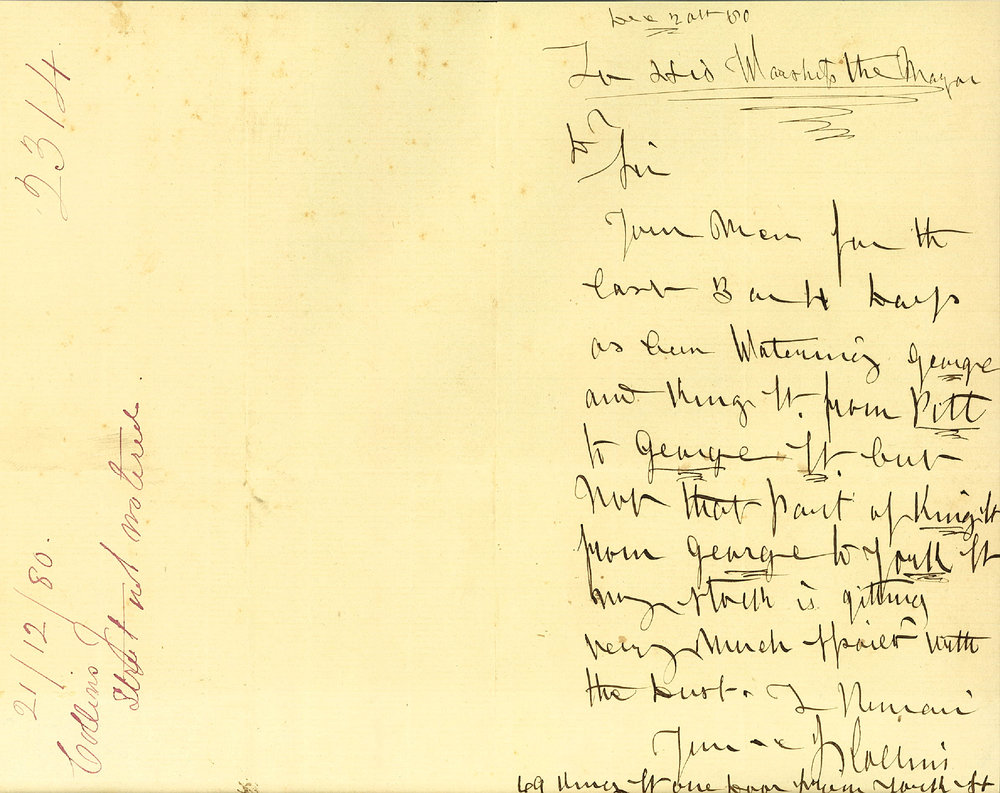 Dec 20th 80
To His Worship the Mayor
Sir
Your Men for the
last 3 or 4 days
as been Watering George
and King St. from Pitt
to George St. but
Not that part of King St
from George to York St
my stock is getting
very Much Spoilt with
the dust. I Remain
Your &c J Collins
69 King St one door from York St
2314
21/12/80.
Collins J
Street not watered.